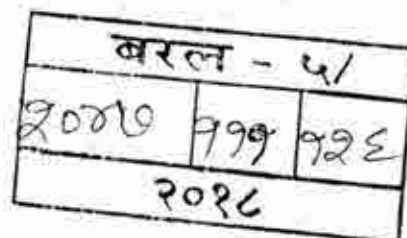 बरल - ५/
२०४७ ११५ १२६
२०१८